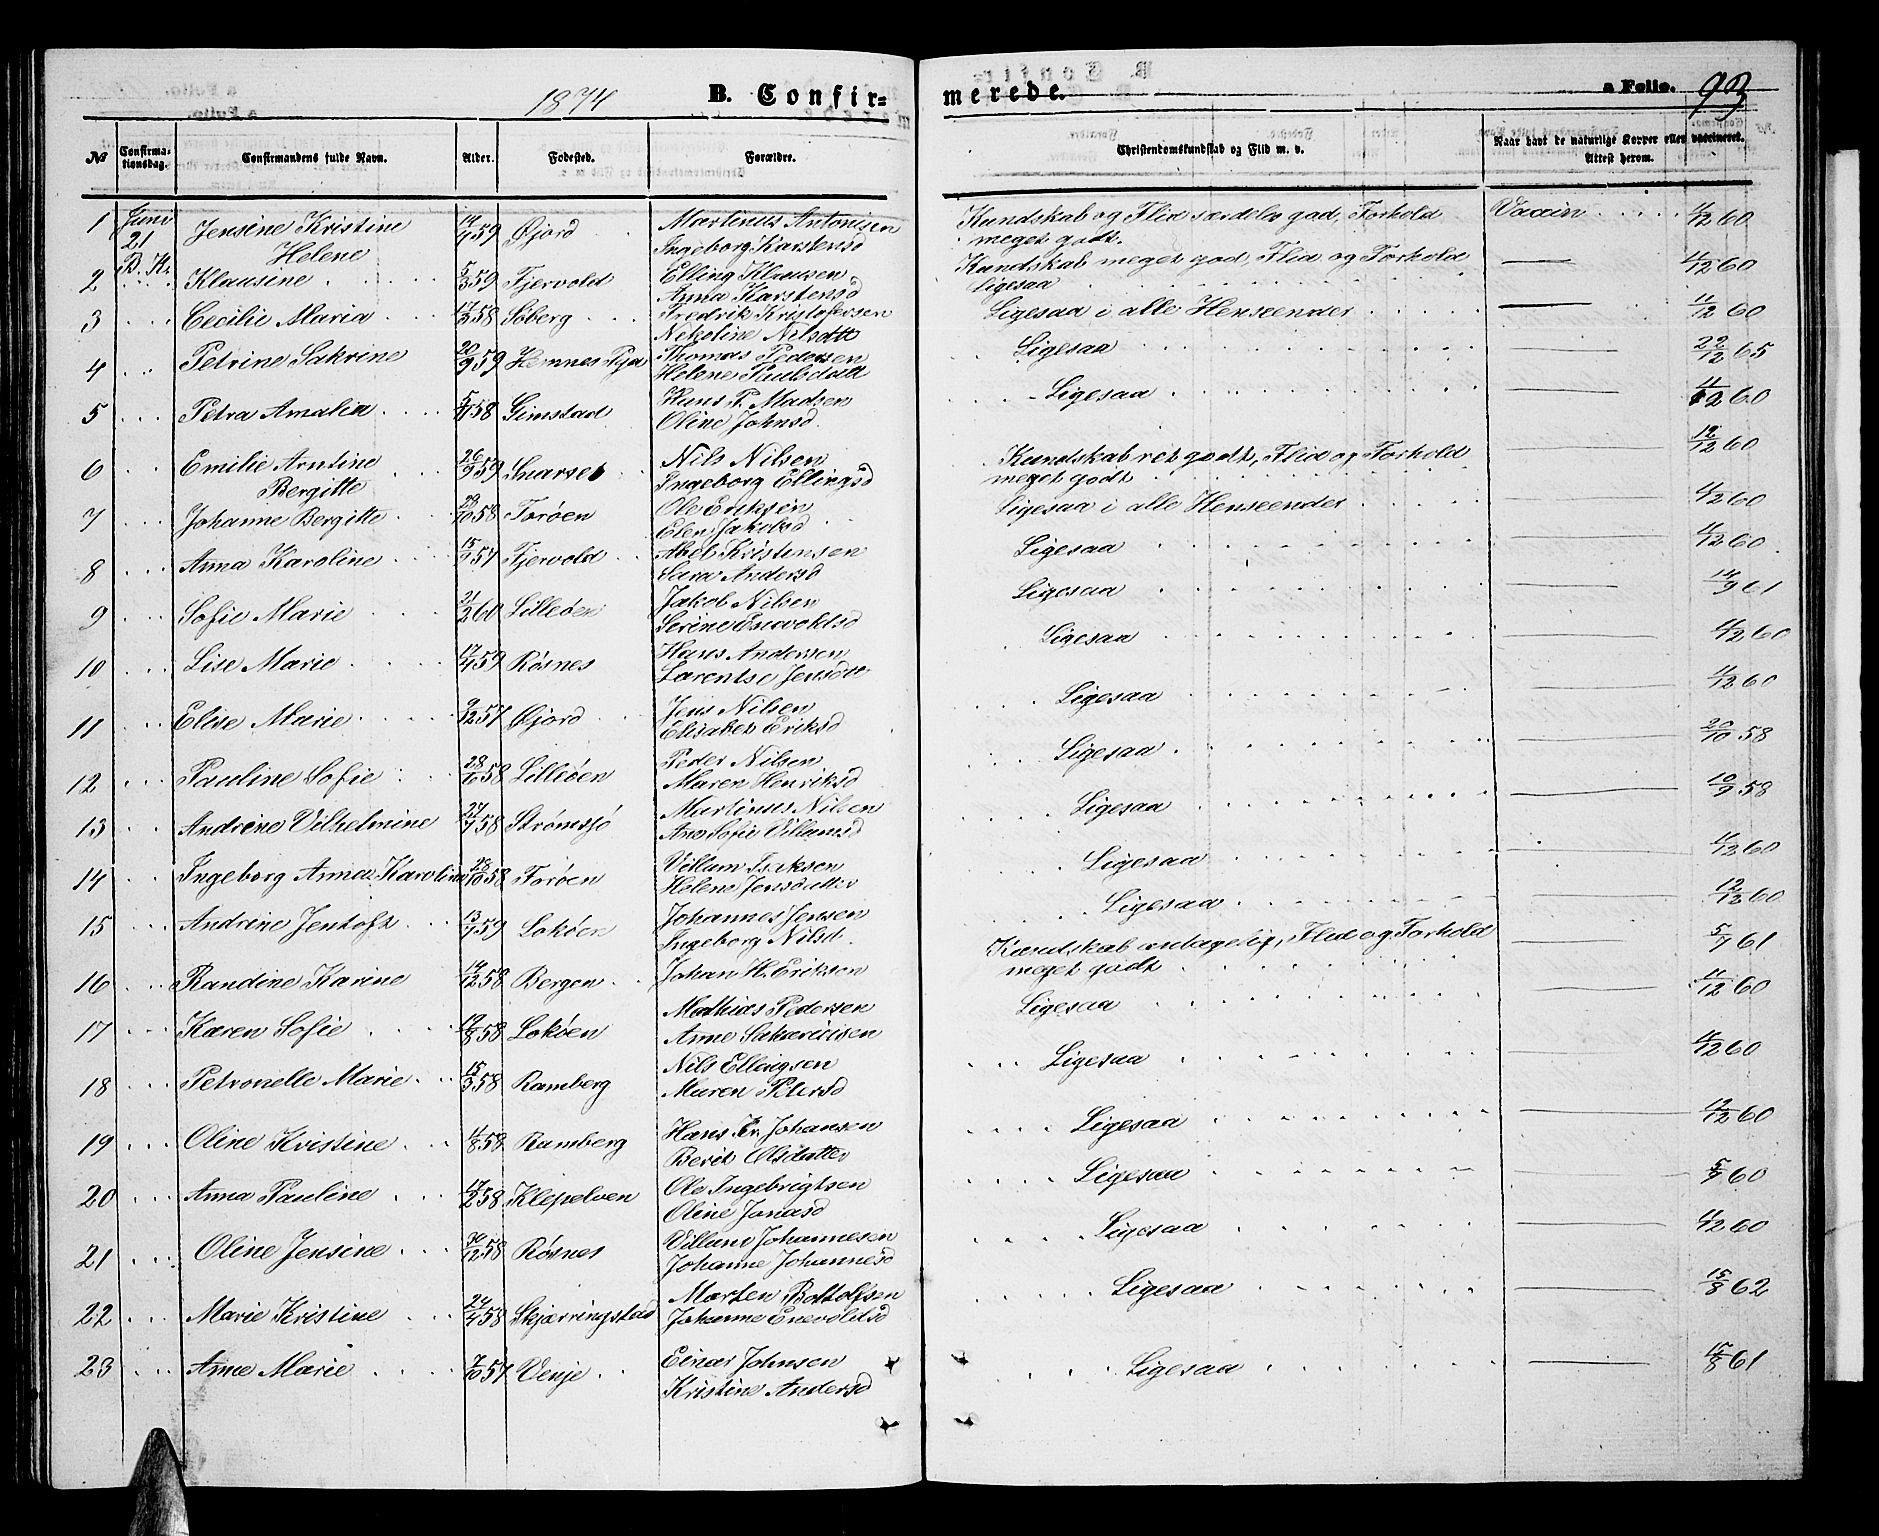 1874 B. Confir= merede. a Folio. 93
No Confirma-tionsdag. Confirmandens fulde Navn. Alder. Fødested. Forældre. Christendomskundskab og Flid m. v. Naar havt de naturlige Kopper eller vaccineret. Attest herom.
1 Juni 21 Jensine Kristine 14/4 59 Øjord Martinus Antonisen Kundskab og Flid særdeles god, Forhold Vaccin 4/12 60
B. K. Helene Ingeborg Karstensd meget godt.
2 Klausine 5/3 59 Fjervold Elling Klausen Kundskab meget god, Flid og Forhold 4/12 60
Anna Karstensd ligesaa
3 Cecilie Maria 17/3 58 Søberg Fredrik Kristofersen Ligesaa i alle Henseender 11/12 60
Nekoline Nilsdtt
4 Petrine Sakrine 20/9 59 Hemnes Thomas Pedersen Ligesaa 22/12 65
Helene Paulsdatt
5 Petra Amalia 5/11 58 Gimstad Hans P. Madsen Ligesaa 4/12 60
Oline Johnsd.
6 Emilie Arntine 26/9 59 Nils Nilsen Kundskab ret godt, Flid og Forhold 12/12 60
Bergitte Ingeborg Ellingsd meget godt
7 Johanne Bergitte 29/10 58 Forøen Ole Eriksen Ligesaa i alle Henseender 4/12 60
Elen Jakobsd
8 Anna Karoline 15/9 54 Fjervold Abel Kristensen Ligesaa 4/12 60
Sara Andersd
9 Sofie Marie 21/2 60 Lilleøen Jakob Nilsen Ligesaa 14/9 61
Serine Enevoldsd
10 Lise Marie 17/4 59 Røsnes Hans Andersen Ligesaa 4/12 60
Larentse Jensdtt
11 Elise Marie 9/12 57 Øjord Jens Nilsen Ligesaa 4/12 60
Elisabet Eriksd
12 Pauline Sofie 28/6 58 Lilleøen Peder Nilsen Ligesaa 20/10 58
Maren Henriksd
13 Andrine Vilhelmine 24/7 58 Strømsjø Martinus Nilsen Ligesaa 10/9 58
Ane Sofie Villumsd
14 Ingeborg Anna Karoline 28/10 58 Forøen Villum Isaksen Ligesaa 11/12 60
Helene Jensdatter
15 Andrine Jentoft 13/7 59 Lokøen Johannes Jensen Ligesaa 12/12 60
Ingeborg Nilsd.
16 Randine Karine 14/12 58 Bergen Johan H. Eriksen Kundskab antagelig, Flid og Forhold 5/7 61
meget godt
17 Karen Sofie 19/8 58 Lokøen Mathias Pedersen Ligesaa 11/12 60
Anne Sakariasen
18 Petronelle Marie 15/3 58 Ramberg Nils Ellingsen Ligesaa 4/12 60
Maren Petersd
19 Oline Kristine 11/8 58 Ramberg Hans Kr. Johansen Ligesaa 12/12 60
Berit Olsdatter
20 Anna Pauline 17/2 58 Klepelven Ole Ingebrigtsen Ligesaa 5/7 60
Oline Jonasd
21 Oline Jensine 30/12 58 Røsnes Villum Johannesen Ligesaa 4/12 60
Johanne Johannesd
22 Marie Kristine 24/4 58 Skjærringstad Morten Bottolfsen Ligesaa 15/8 62
Johanne Enevoldsd
23 Anne Marie 7/10 57 Venje Einar Johnsen Ligesaa 15/8 61
Kristine Andersd